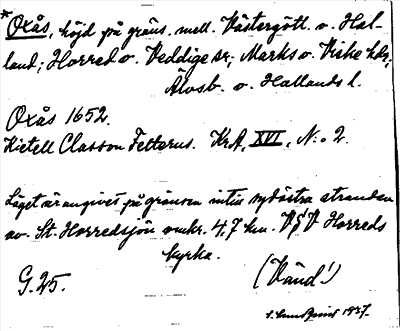 * Oxås, höjd på gräns. mell. Västergötl. o. Hal-
land; Horred o. Veddige sr; Marks o. Viske hdr,
Älvsb. o. Hallands l.
Oxås 1652.
Kietell Classon Felterus. KrA, XVI, N:o 2.
Läget är angivet på gränsen intill sydöstra stranden
av St. Horredsjön omkr. 4,7 km. V§V Horreds
kyrka.
G. 25. (Vänd!)
1937.